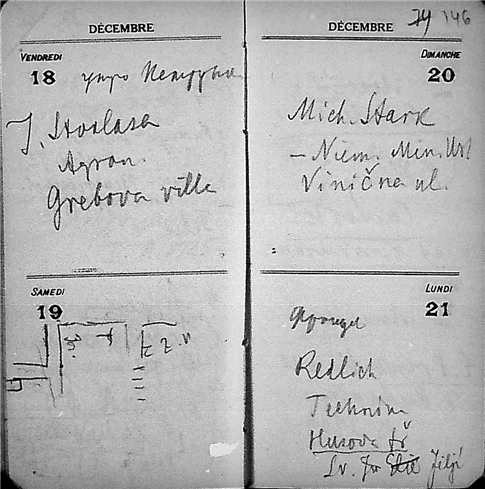 DÉCEMBRE
VENDREDI
18 утро
J. Stoklasa
Agron.
Grebova villa
SAMEDI
19
DÉCEMBRE 146
DIMANCHE
20
Mich. Stark
– Niem. Min. Urt
Viničná ul.
LUNDI
21
Redlich
Technika
Husova tř
Sv. Jiljí